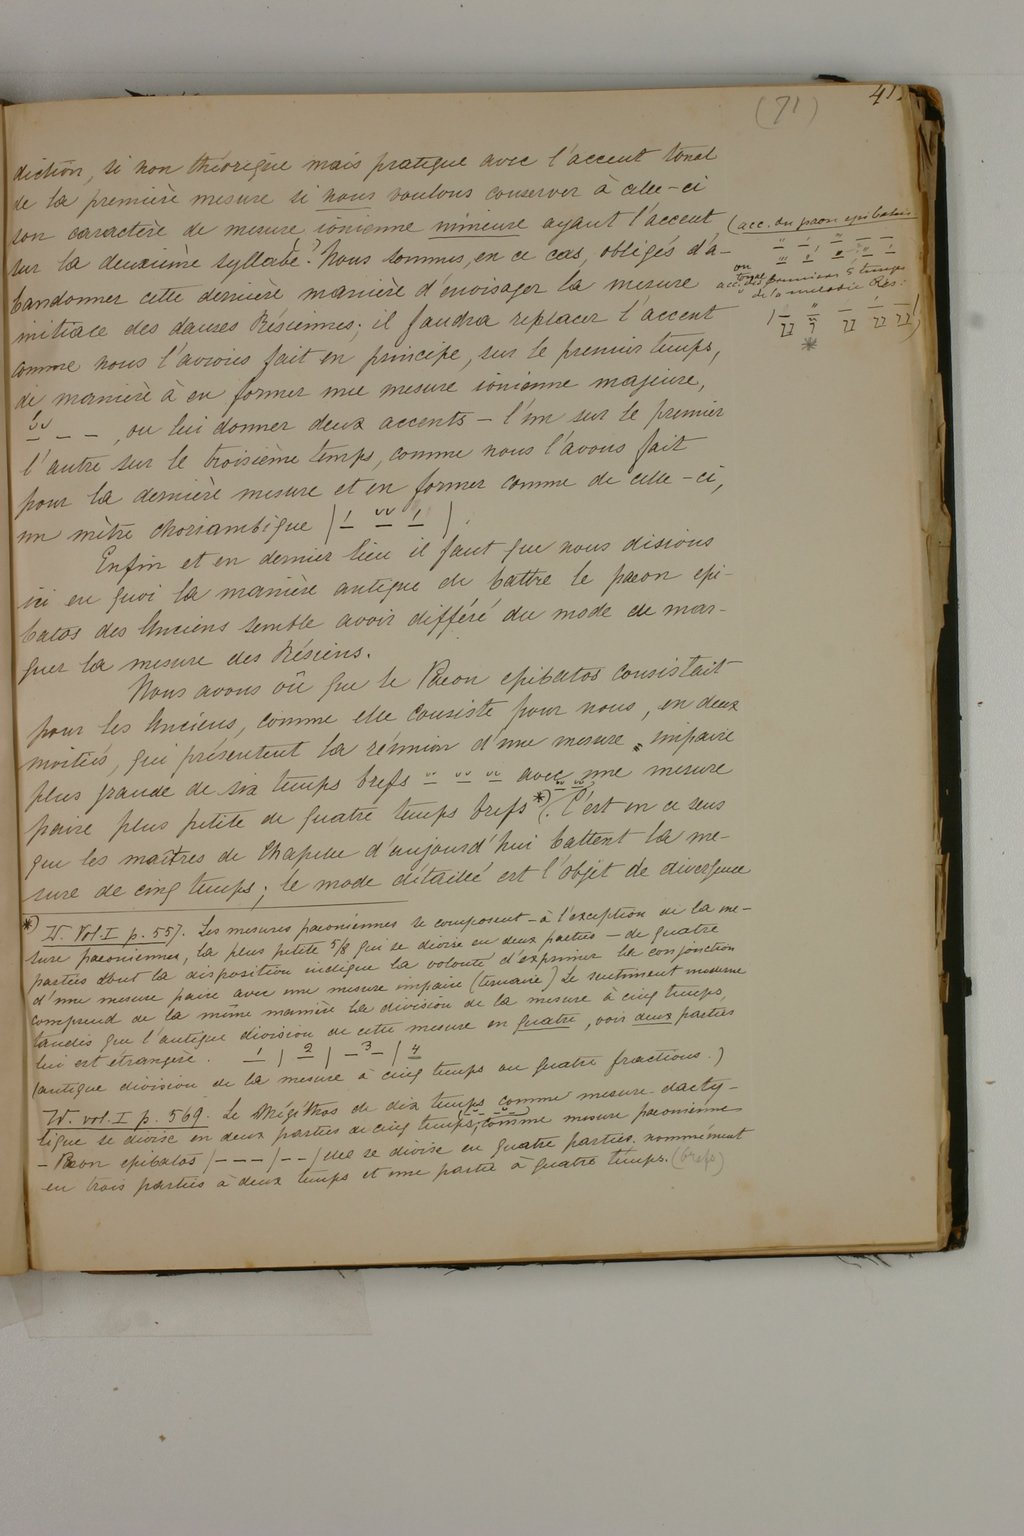 (71)
41.
diction, si non théorique mais pratique avec l'accent tonal
de la première mesure si nous voulons conserver à celle-ci
son caractère de mesure ionienne mineure ayant l'accent
sur la deuxième syllabe? Nous sommes, en ce cas, obligés d'a-
bandonner cette dernière manière d'envisager la mesure
initiale des danses Résiennes; il faudra replacer l'accent
comme nous l'avions fait en principe, sur le premier temps,
de manière à en former une mesure ionienne majeure,
, ou lui donner deux accents – l'un sur le premier
l'autre sur le troisième temps, comme nous l'avons fait
pour la dernière mesure et en former comme de celle-ci,
un mètre choriambique
(acc. du paeon epibatos
acc. des premiers 5 temps
de la mélodie Rés:
Enfin et en dernier lieu il faut que nous disions
ici en quoi la manière antique de battre le paeon epi-
batos des Anciens semble avoir différé du mode de mar-
quer la mesure des Résiens.
Nous avons vû que le Paeon epibatos consistait
pour les Anciens, comme elle consiste pour nous, en deux
moitiés, qui présentent la réunion d'une mesure impaire
plus grande de six temps brefs avec une mesure
paire plus petite de quatre temps brefs*). C'est en ce sens
que les maîtres de Chapelle d'aujourd'hui battent la me-
sure de cinq temps; le mode détaillé est l'objet de divergence
*) W. Vol. I p. 557. Les mesures paeoniennes se composent – à l'exception de la me-
sure paeonienne, la plus petite 5/8 qui se divise en deux parties – de quatre
parties dont la disposition indique la volonté d'exprimer la conjonction
d'une mesure paire avec une mesure impaire (ternaire) Le sentiment moderne
comprend de la même manière la division de la mesure à cinq temps,
tandis que l'antique division de cette mesure en quatre, voir deux parties
lui est etrangère. 1 | 2 | –3– | 4
(antique division de la mesure à cinq temps ou quatre fractions.)
W. vol. I p. 569. Le Mégéthos de dix temps comme mesure dacty-
lique se divise en deux parties de cinq temps, comme mesure paeonienne
– Paeon epibatos |– – –|– –| elle se divise en quatre parties, nommément
en trois parties à deux temps et une partie à quatre temps. (brefs)